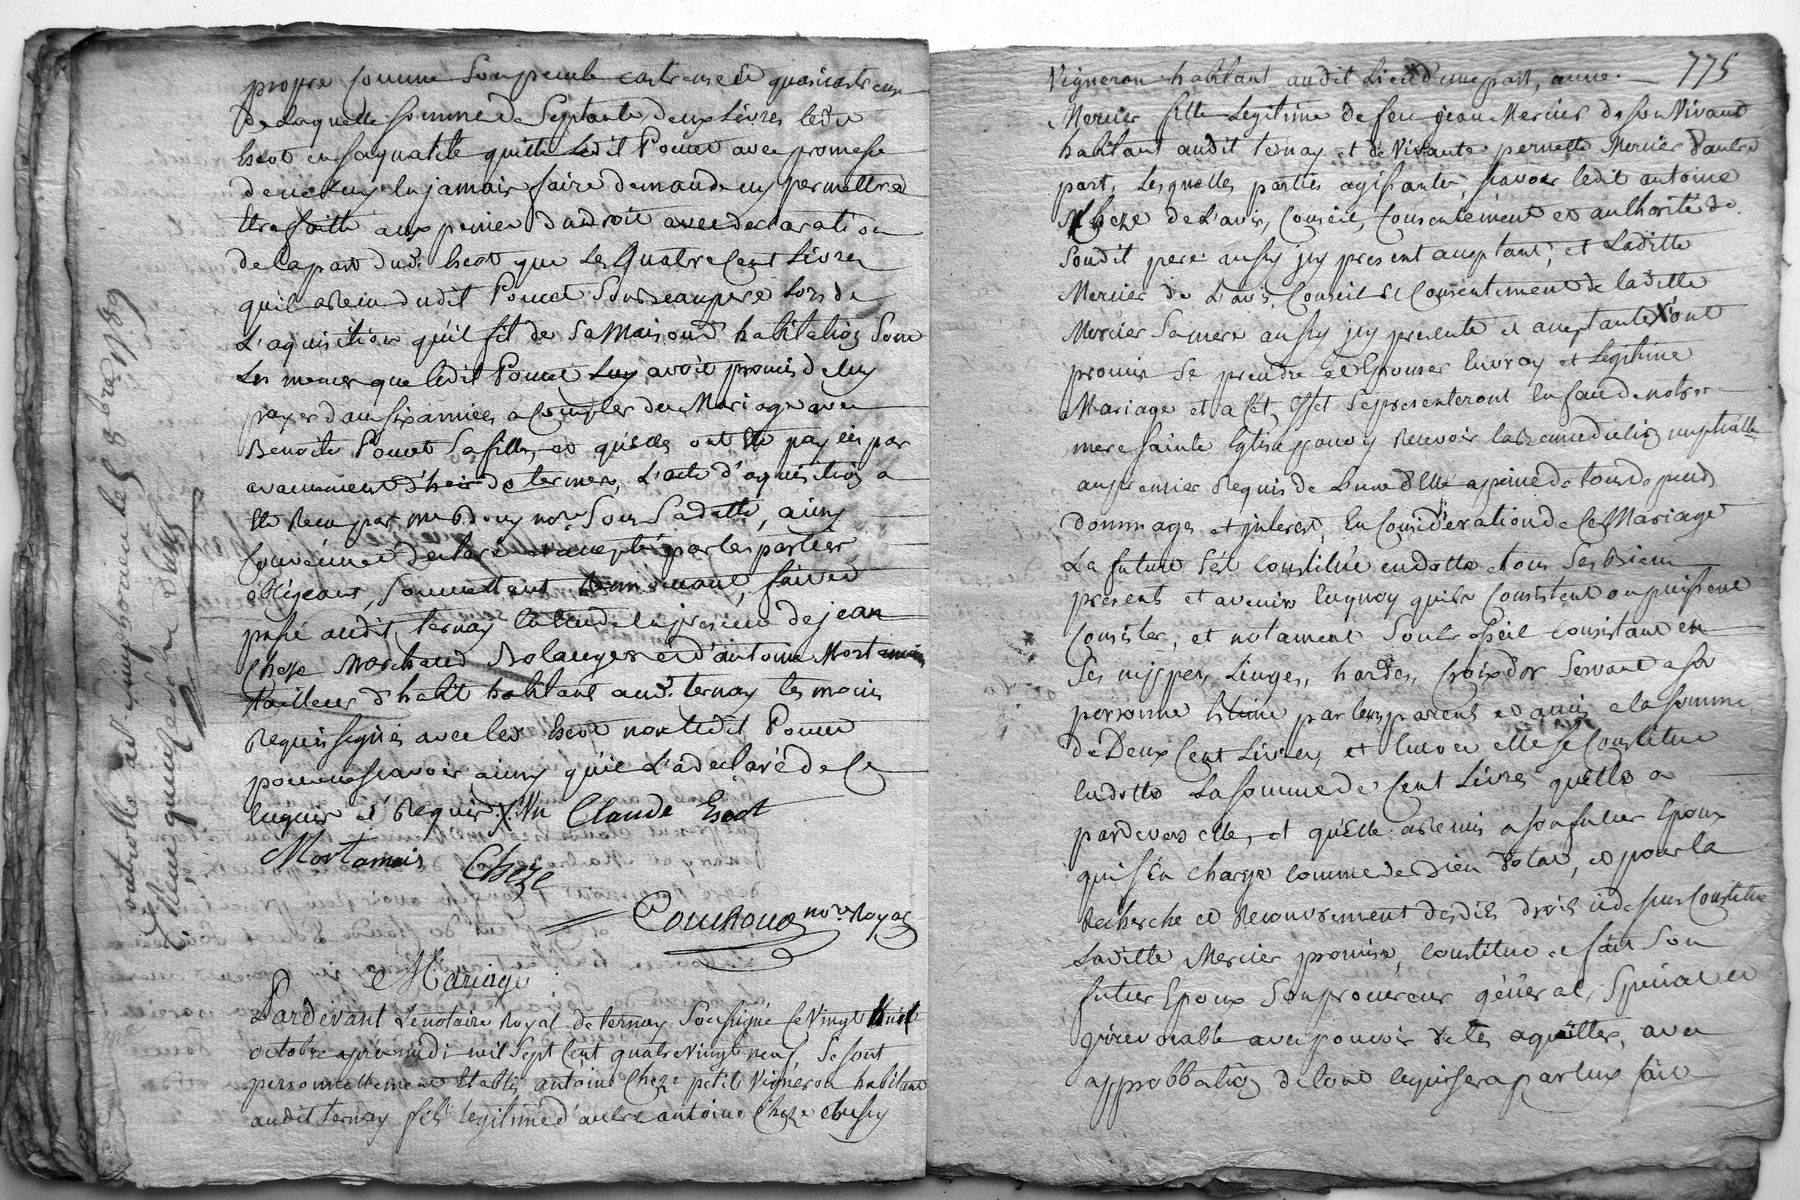 propre comme son pecule castrense et quasi castrense
de Laquelle somme de Septante deux Livres ledit
Escot en sa qualité quitte Ledit Poncet avec promesse
de ne Luy en jamais faire demande ny permettre
Etre faitte aux peines du droit avec declaration
de la part dudt Escot que Les Quatre Cent Livres
qu'il a Receu dudit Poncet Son Beaupere Lors de
L'aquisition qu'il fit de Sa Maison d'habitation Sont
Les memes que ledit Poncet Luy avoit promis de luy
payer dans six années a Compter du Mariage avec
Benoite Poncet Sa fille, et qu'elles ont Eté payées par
avancement de termes, L'acte d'aquisition a
Eté Receu par me nore Sous Sa datte, ainsy
Convenu Declaré et accepté par les parties
obligeant, Soumettant Renonceant, fait et
passé audit ternay Etude En presence de jean
Cheze Marchand Bolanger et d'antoine Mortamais
tailleur d'habit habitant audt ternay temoins
Requis signés avec led Escot non ledit Poncet
pour ne sçavoir ainsy qu'il L'a declaré de Ce
Enquis et Requis Claude Escot
Mortamais Cheze
nore Royal
Controllé a St Simphorien le 8 9bre 1789
Reçu quinze sols
Mariage
Pardevant Le notaire Royal de ternay Soussigné Ce Vingt huit
octobre apres midi mil Sept Cent quatre vingt neuf Se sont
personnellement Etablis antoine Cheze petit Vigneron habitant
audit ternay fils legitime d'autre antoine Cheze aussy
775
Vigneron habitant audit Lieu d'une part, anne
Mercier fille Legitime de feu jean Mercier de son Vivant
habitant audit ternay et de Vivante pernette Mercier d'autre
part, Lesquelles parties agissantes, sçavoir ledit antoine
Cheze de L'avis, Conseil, Consentement et authorité de
Sondit pere aussy jcy present acceptant, et Laditte
Mercier de L'avis, Conseil et Consentement de laditte
Mercier Sa mere aussy jcy presente et acceptante ont
promis Se prendre et Epouser En vray et Legitime
Mariage et a Cet Effet Se presenteront En face de notre
mere Sainte Eglise pour y Recevoir la Benediction nuptialle
au premier Requis de L'une d'Elle a peine de tous depends
dommages et jnterest, En Consideration de Ce Mariage
La future S'est Constitué en dotte tous Ses Biens
presents et avenirs En quoy qu'ils Consistent ou puissent
Consister, et notament Son trossel Consistant en
Ses nippes, Linges, hardes, Croix d'or Servant a Sa
personne Estimé par leurs parents et amis a la Somme
de Deux Cent Livres, et Encore elle se Constitue
En dotte La Somme de Cent Livres qu'elle a
pardevers elle, et qu'Elle a Remis a Son futur Epoux
qui S'En charge Comme de Bien dotal, et pour la
Recherche et Recouvrement desdits droits cy dessus Constitués
Laditte Mercier promise, Constitue et fait Son
futur Epoux Son procureur général, Special et
jrrevocable avec pouvoir de Les aquitter, avec
approbbation de tout Ce qui Sera par Lui fait